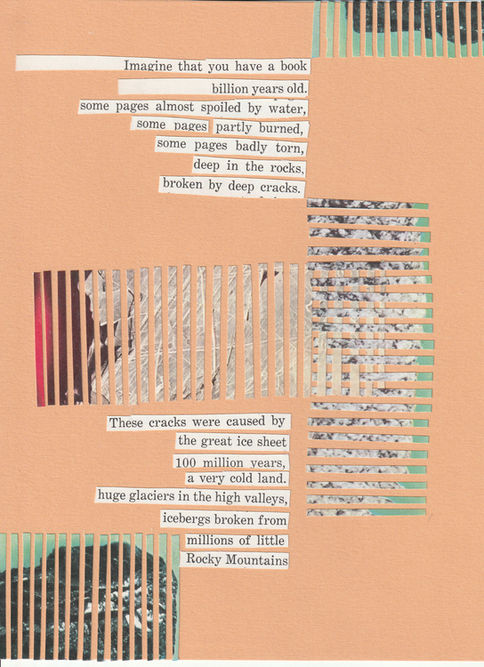 Imagine that you have a book
billion years old.
some pages almost spoiled by water,
some pages partly burned,
some pages badly torn,
deep in the rocks,
broken by deep cracks.
These cracks were caused by
the great ice sheet
100 million years,
a very cold land.
huge glaciers in the high valleys,
icebergs broken from
millions of little
Rocky Mountains